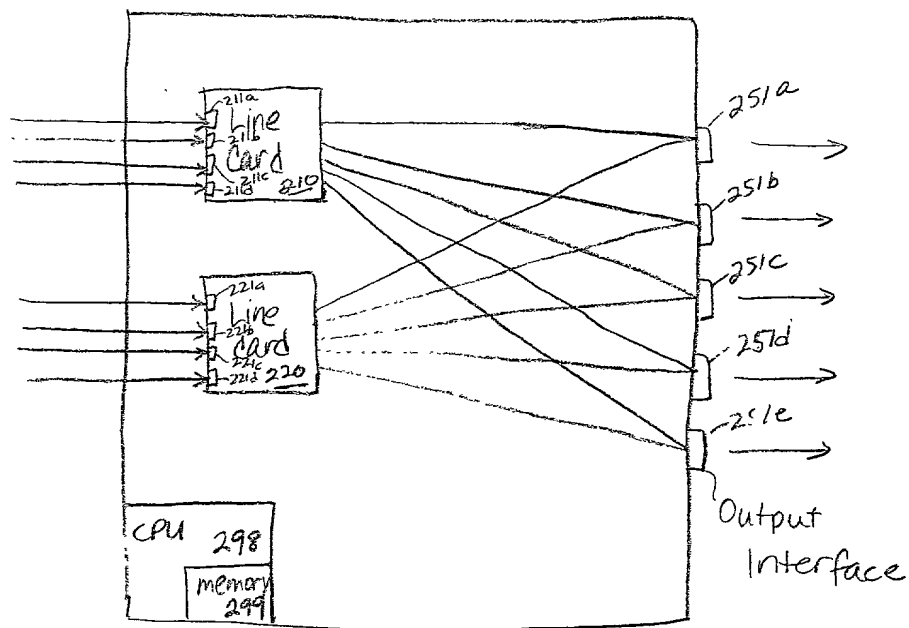 211a
Line
211b
Card
211c
211d
210
221a
Line
221b
Card
221c
221d
220
251a
251b
251c
251d
251e
Output
Interface
CPU
298
memory
299